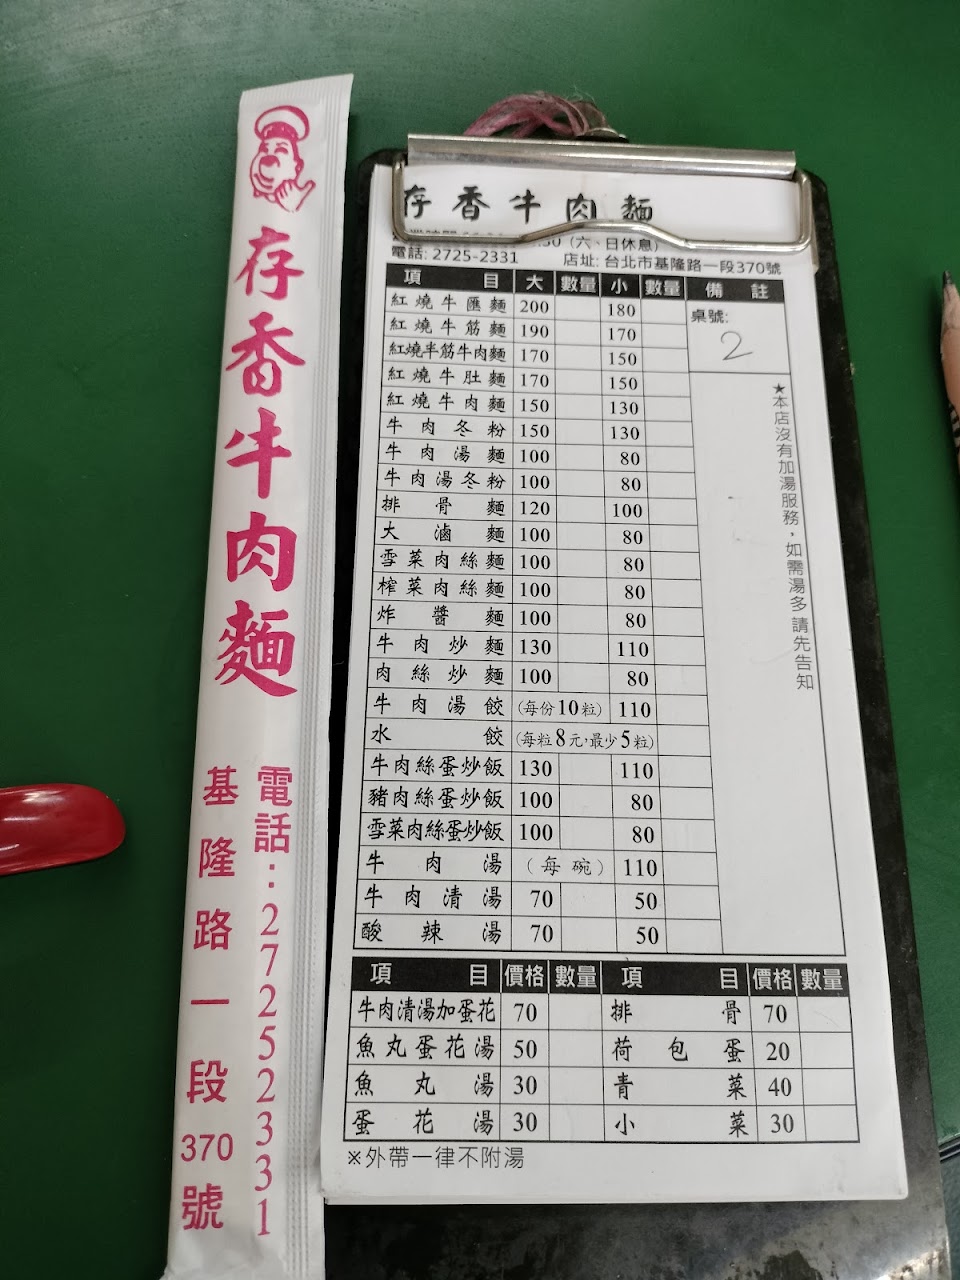 存香牛肉麵
電話:27252331
基隆路一段370號
存香牛肉麵
(六、日休息)
電話: 2725-2331 店址: 台北市基隆路一段370號
項目 大 數量 小 數量 備註
紅燒牛匯麵 200 180
桌號:
2
紅燒牛筋麵 190 170
紅燒半筋牛肉麵 170 150
紅燒牛肚麵 170 150
紅燒牛肉麵 150 130
牛肉冬粉 150 130
牛肉湯麵 100 80
牛肉湯冬粉 100 80
排骨麵 120 100
大滷麵 100 80
雪菜肉絲麵 100 80
榨菜肉絲麵 100 80
炸醬麵 100 80
牛肉炒麵 130 110
肉絲炒麵 100 80
牛肉湯餃 (每份10粒) 110
水餃 (每粒8元,最少5粒)
牛肉絲蛋炒飯 130 110
豬肉絲蛋炒飯 100 80
雪菜肉絲蛋炒飯 100 80
牛肉湯 (每碗) 110
牛肉清湯 70 50
酸辣湯 70 50
★本店沒有加湯服務,如需湯多請先告知
項目 價格 數量 項目 價格 數量
牛肉清湯加蛋花 70 排骨 70
魚丸蛋花湯 50 荷包蛋 20
魚丸湯 30 青菜 40
蛋花湯 30 小菜 30
※外帶一律不附湯